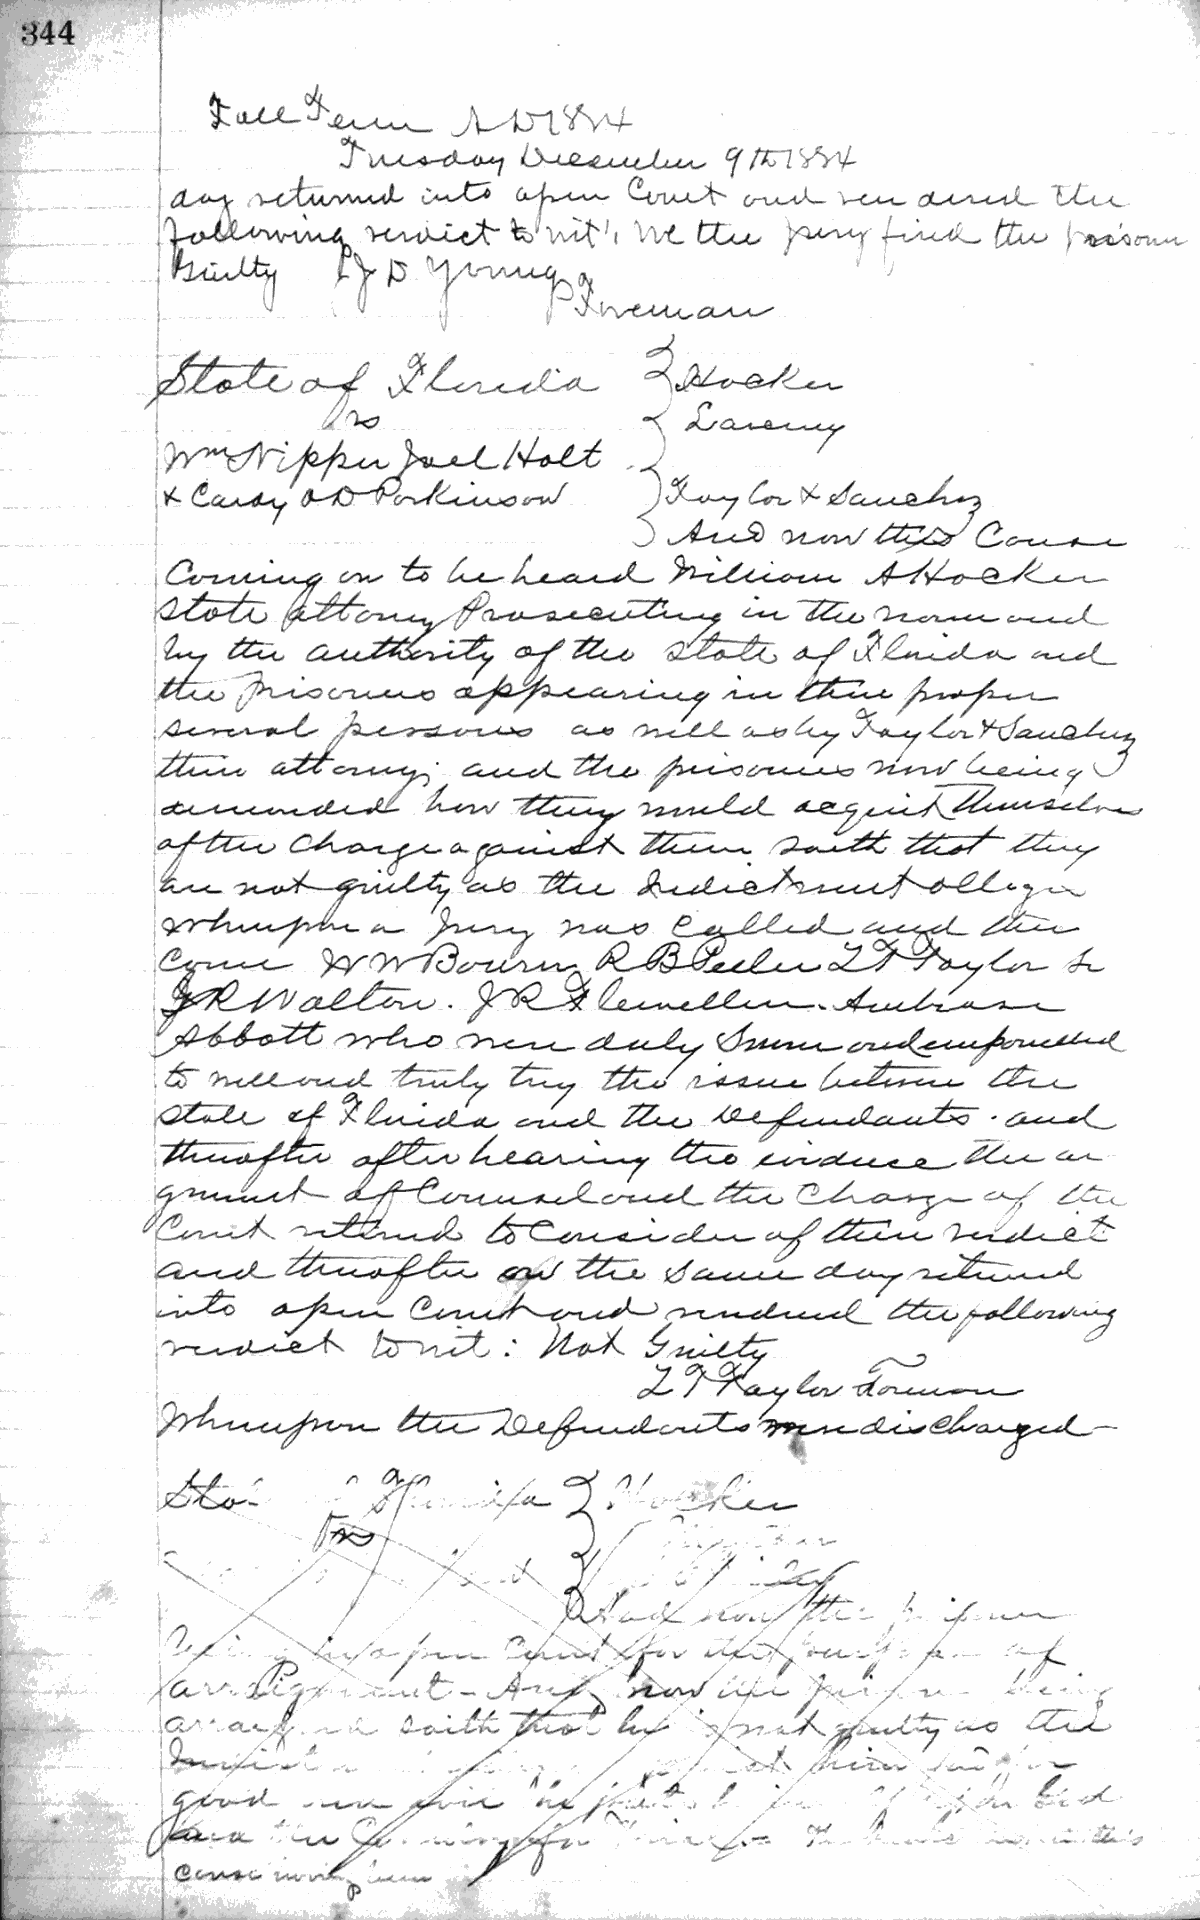 344
Fall Term A D 1884
Tuesday December 9th 1884
day returned into open Court and rendered the
following verdict to wit', We the jury find the prisoner
Guilty J D Young
Foreman
State of Florida } Hocker
vs } Larceny
Wm Nipper Joel Holt
& Caroy O D Parkinson } Taylor & Sanchez
And now this Cause
Coming on to be heard William A Hocker
State attorny Prosecuting in the name and
by the authority of the State of Florida and
the prisoners appearing in thier proper
several persons as well as by Taylor & Sanchez
thier attorneys and the prisoners now being
demanded how they would acquit themselves
of the Charge against them saith that they
are not guilty as the Indictment alleges
Whereupon a Jury was Called and then
Come W W Bourn R B Peeler L T Taylor Sr
J R Walton. J R Flewellen. Ambrose
Abbott who were duly Sworn and empanelled
to well and truly try the issue between the
State of Florida and the Defendants. and
thereafter after hearing the evidence the ar
gument of Counsel and the Charge of the
Court retired to Consider of thier verdict
and thereafter on the same day returned
into open Court and rendered the following
verdict to wit: Not Guilty
L T Taylor Foreman
Whereupon the Defendants were discharged
State of Florida } Hocker
vs
And now the prisoner
being in open Court for the purpose of
arraignment - And now the prisoner being
arraigned saith that he is not guilty as the
him and for
good and
and the
cause having been